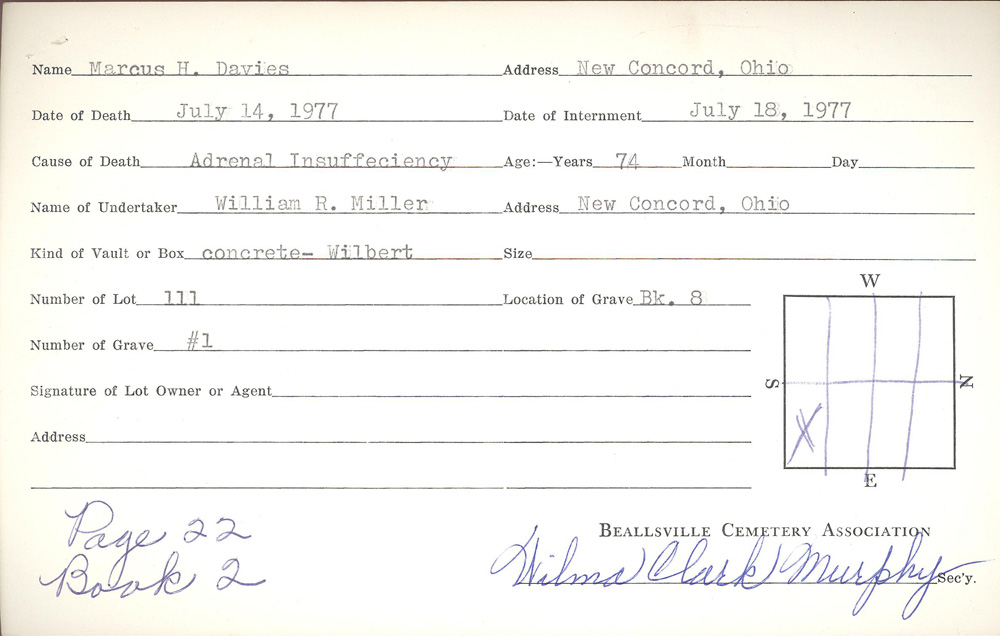 Name Marcus H. Davies Address New Concord, Ohio
Date of Death July 14, 1977 Date of Internment July 18, 1977
Cause of Death Adrenal Insuffeciency Age:—Years 74 Month Day
Name of Undertaker William R. Miller Address New Concord, Ohio
Kind of Vault or Box concrete- Wilbert Size
Number of Lot 111 Location of Grave Bk. 8
Number of Grave #1
Signature of Lot Owner or Agent
Address
W
S
N
X
E
Page 22
Book 2
BEALLSVILLE CEMETERY ASSOCIATION
Wilma Clark Murphy Sec'y.